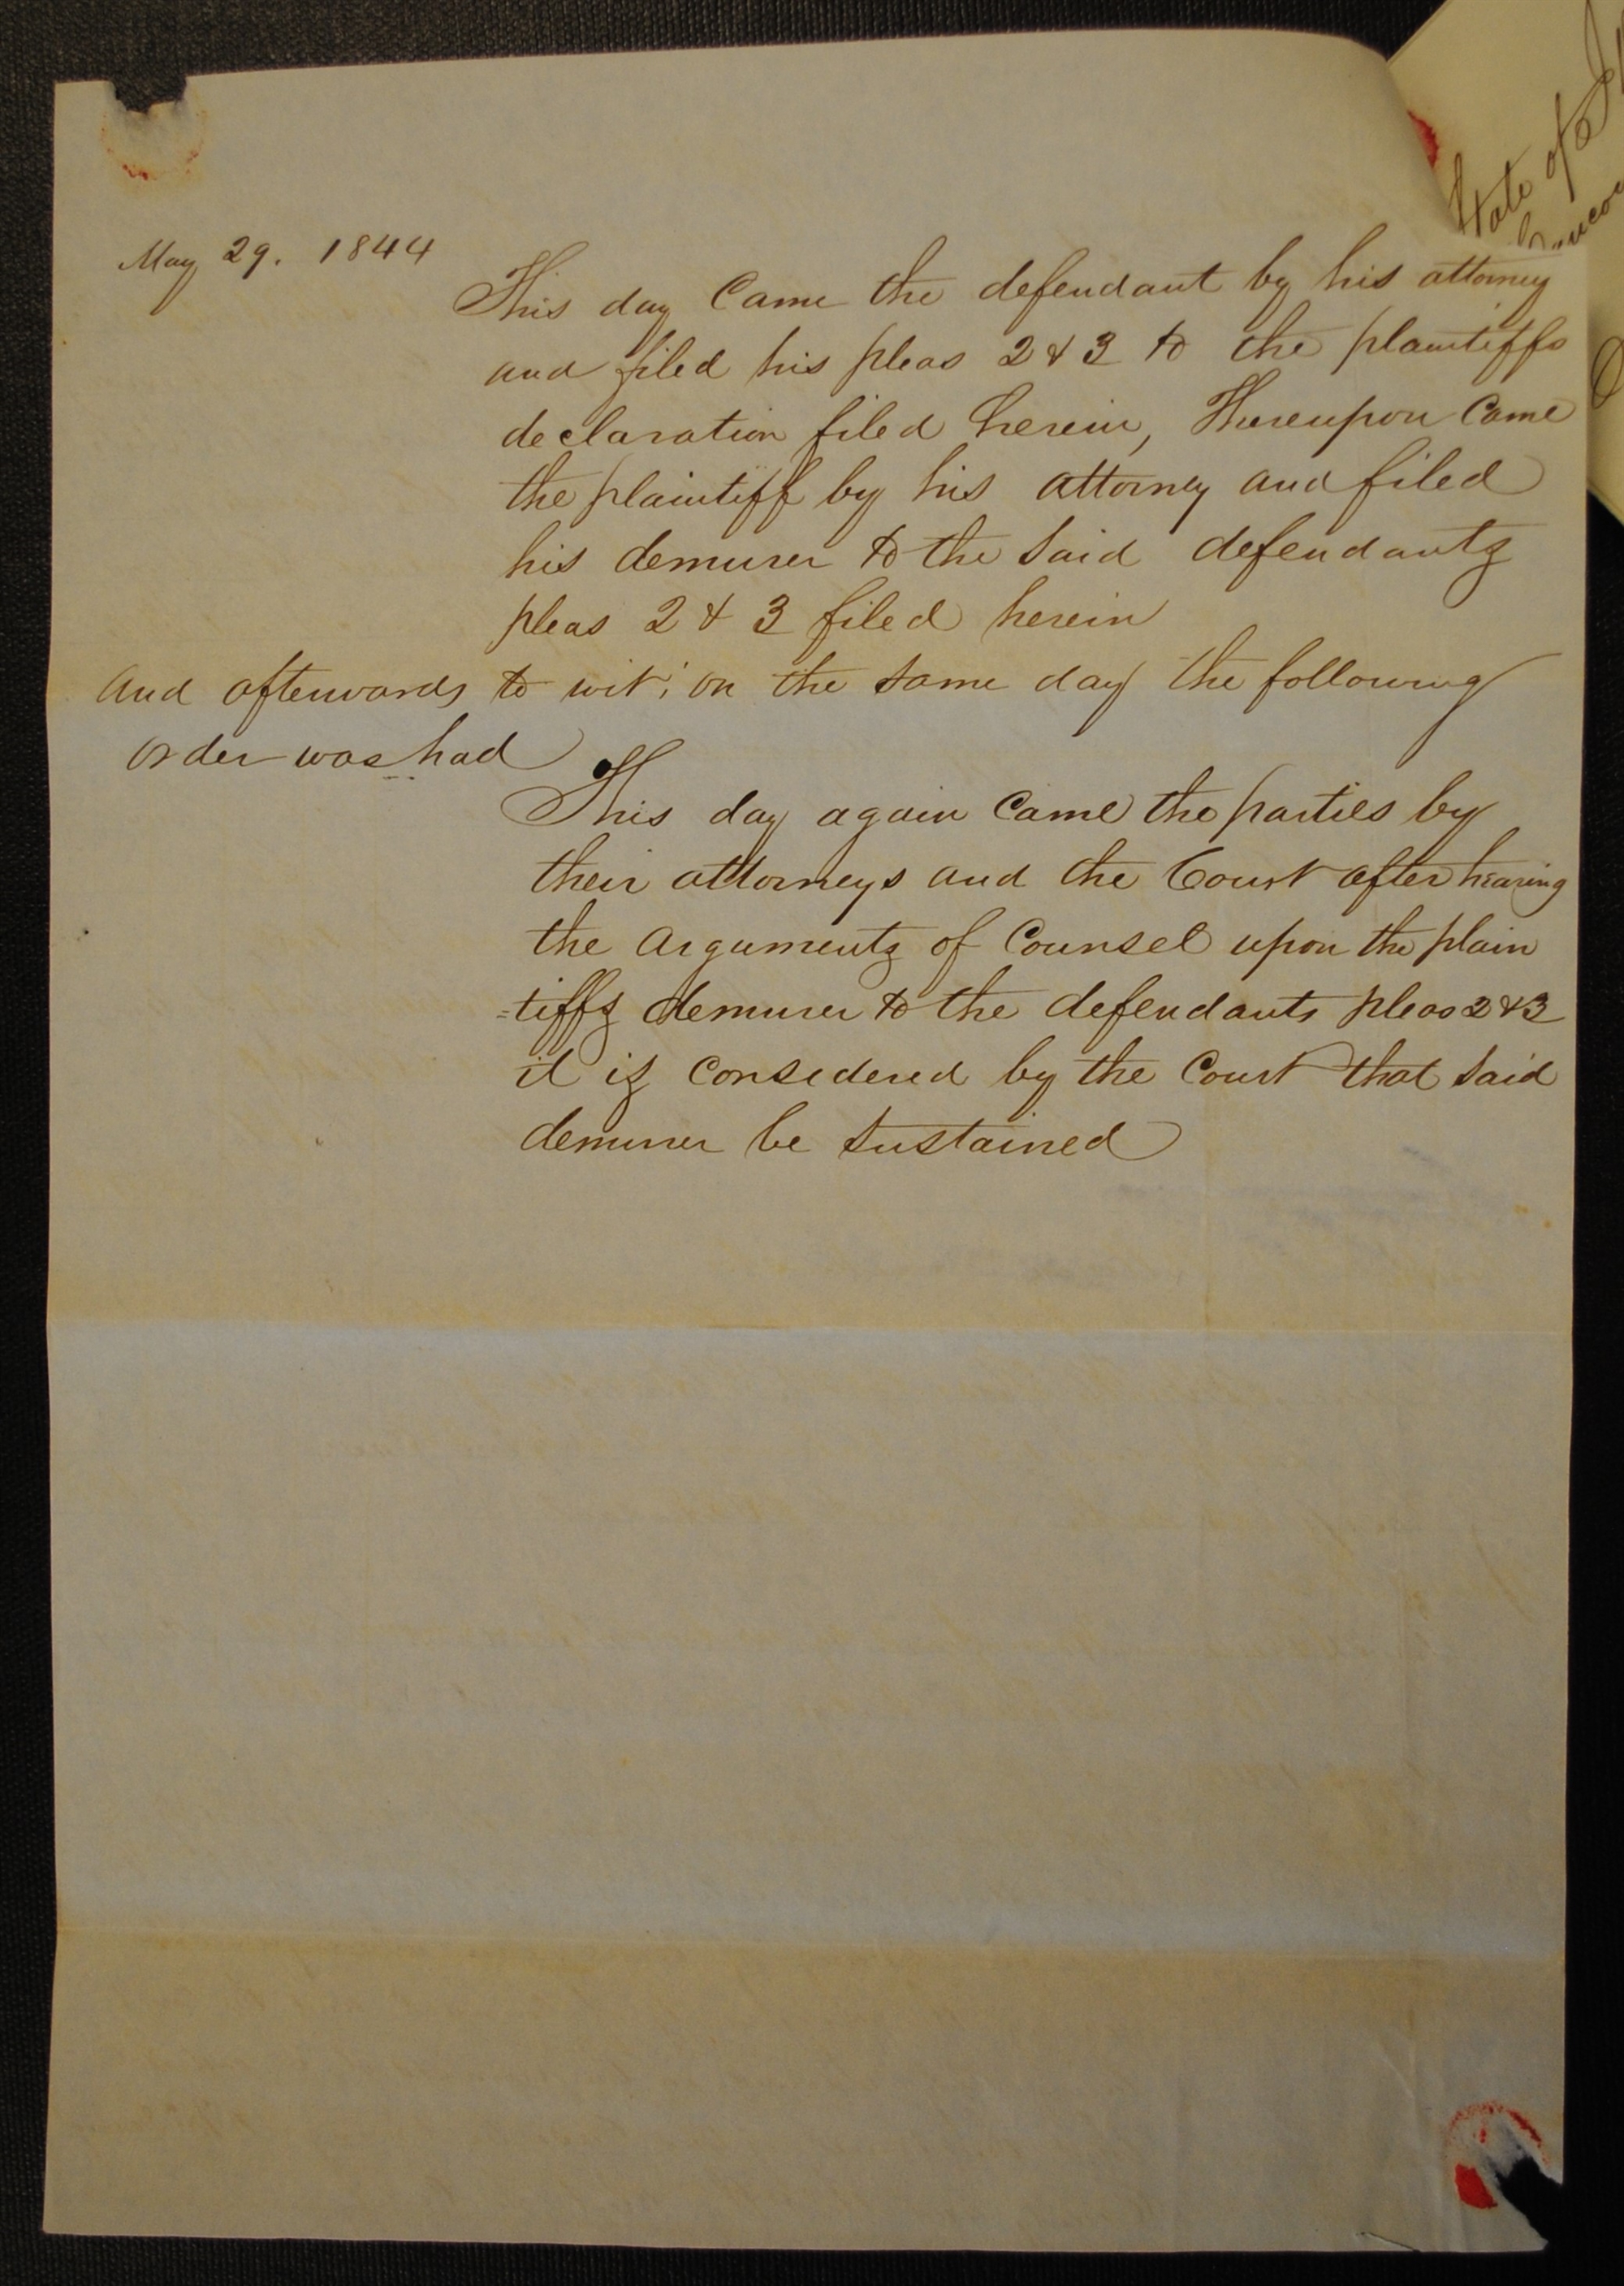 State of
May 29. 1844
This day Came the defendant by his attorney
and filed his pleas 2 & 3 to the plaintiffs
declaration filed herein, Thereupon Came
the plaintiff by his attorney and filed
his demurer to the said defendants
pleas 2 & 3 filed herein
And afterwards to wit; on the same day the following
order was had
This day again Came the parties by
their attorneys and the Court after hearing
the arguments of Counsel upon the plain
=tiffs demurer to the defendants pleas 2 & 3
it is Considered by the Court that said
demurer be sustained